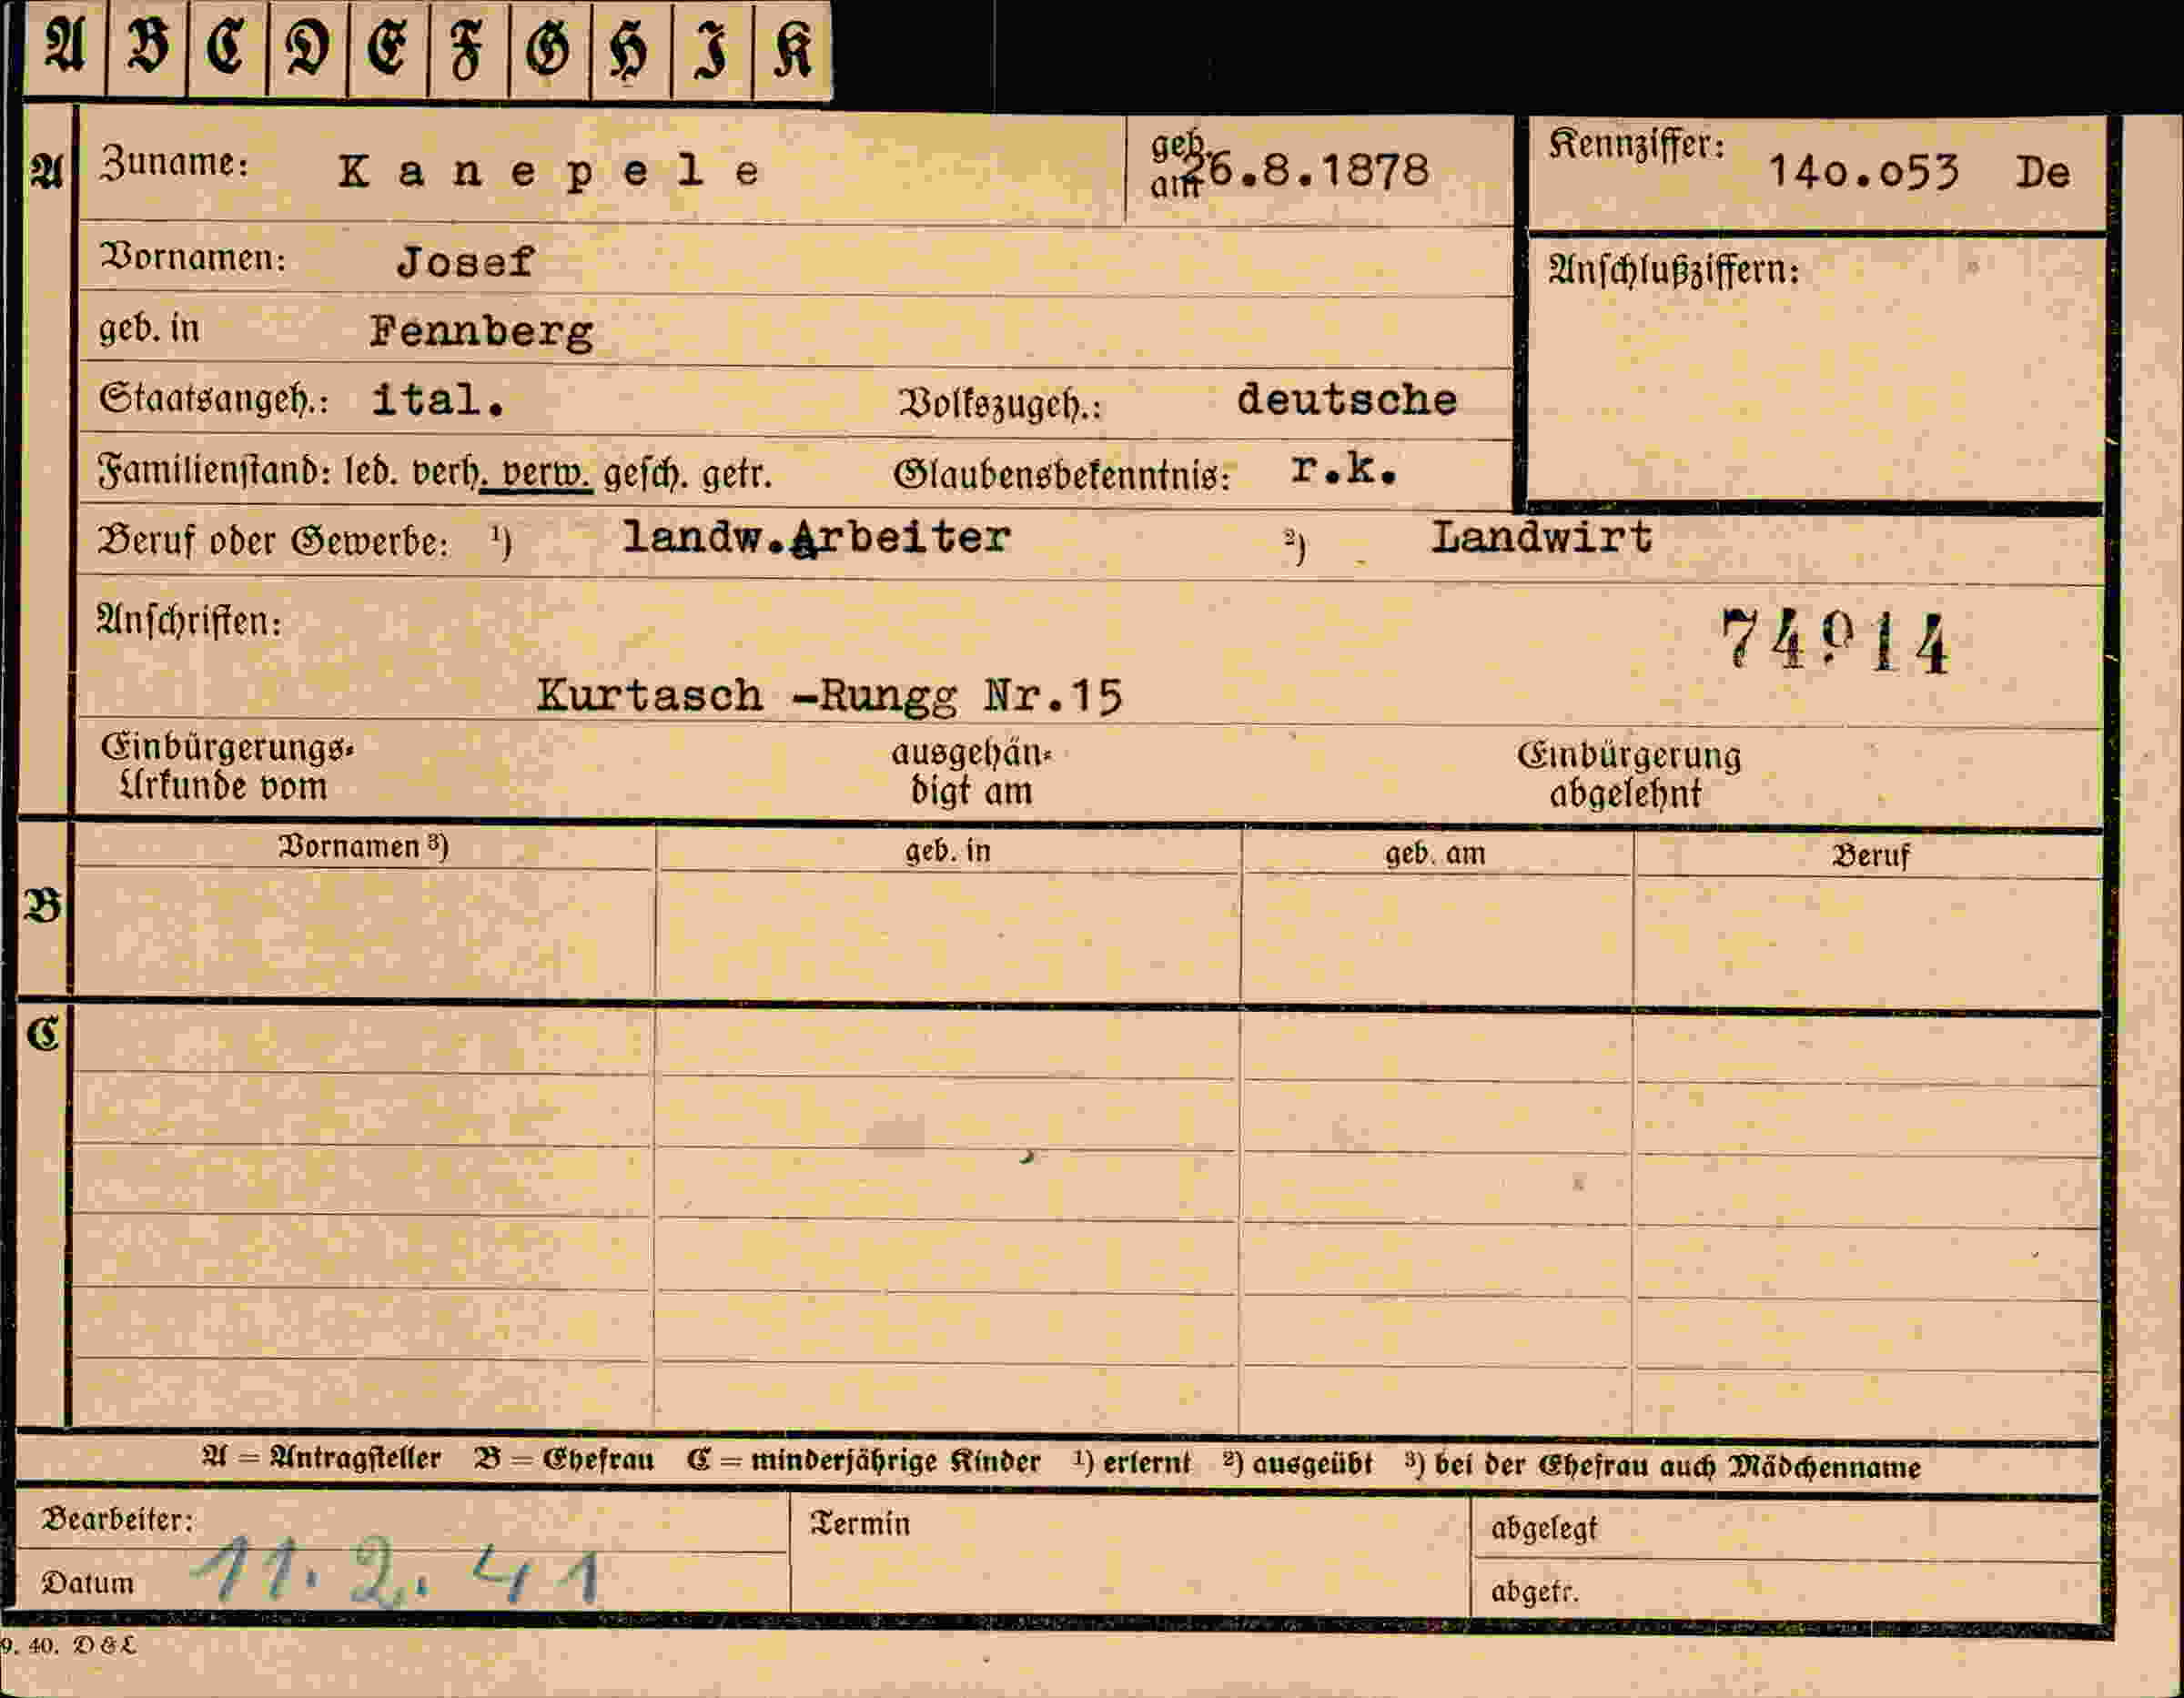 A B C D E F G H I K
A Zuname: Kanepele geb. am 26.8.1878 Kennziffer: 140.053 De
Vornamen: Josef Anschlußziffern:
geb. in Fennberg
Staatsangeh.: ital. Volkszugeh.: deutsche
Familienstand: led. verh. verw. gesch. getr. Glaubensbekenntnis: r.k.
Beruf oder Gewerbe: ¹) landw.Arbeiter ²) Landwirt
Anschriften: 74914
Kurtasch -Rungg Nr.15
Einbürgerungs- ausgehän- Einbürgerung
Urkunde vom digt am abgelehnt
Vornamen ³) geb. in geb. am Beruf
B
C
A = Antragsteller B = Ehefrau C = minderjährige Kinder ¹) erlernt ²) ausgeübt ³) bei der Ehefrau auch Mädchenname
Bearbeiter: Termin abgelegt
Datum 11.2.41 abgetr.
9. 40. D & L